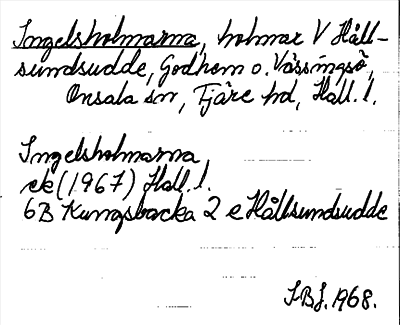 Ingelsholmarna, holmar V Håll-
sundsudde, Godhem o. Vässingsö,
Onsala sn, Fjäre hd, Hall. l.
Ingelsholmarna
ek (1967) Hall. l.
6B Kungsbacka 2 e Hållsundsudde
1968.